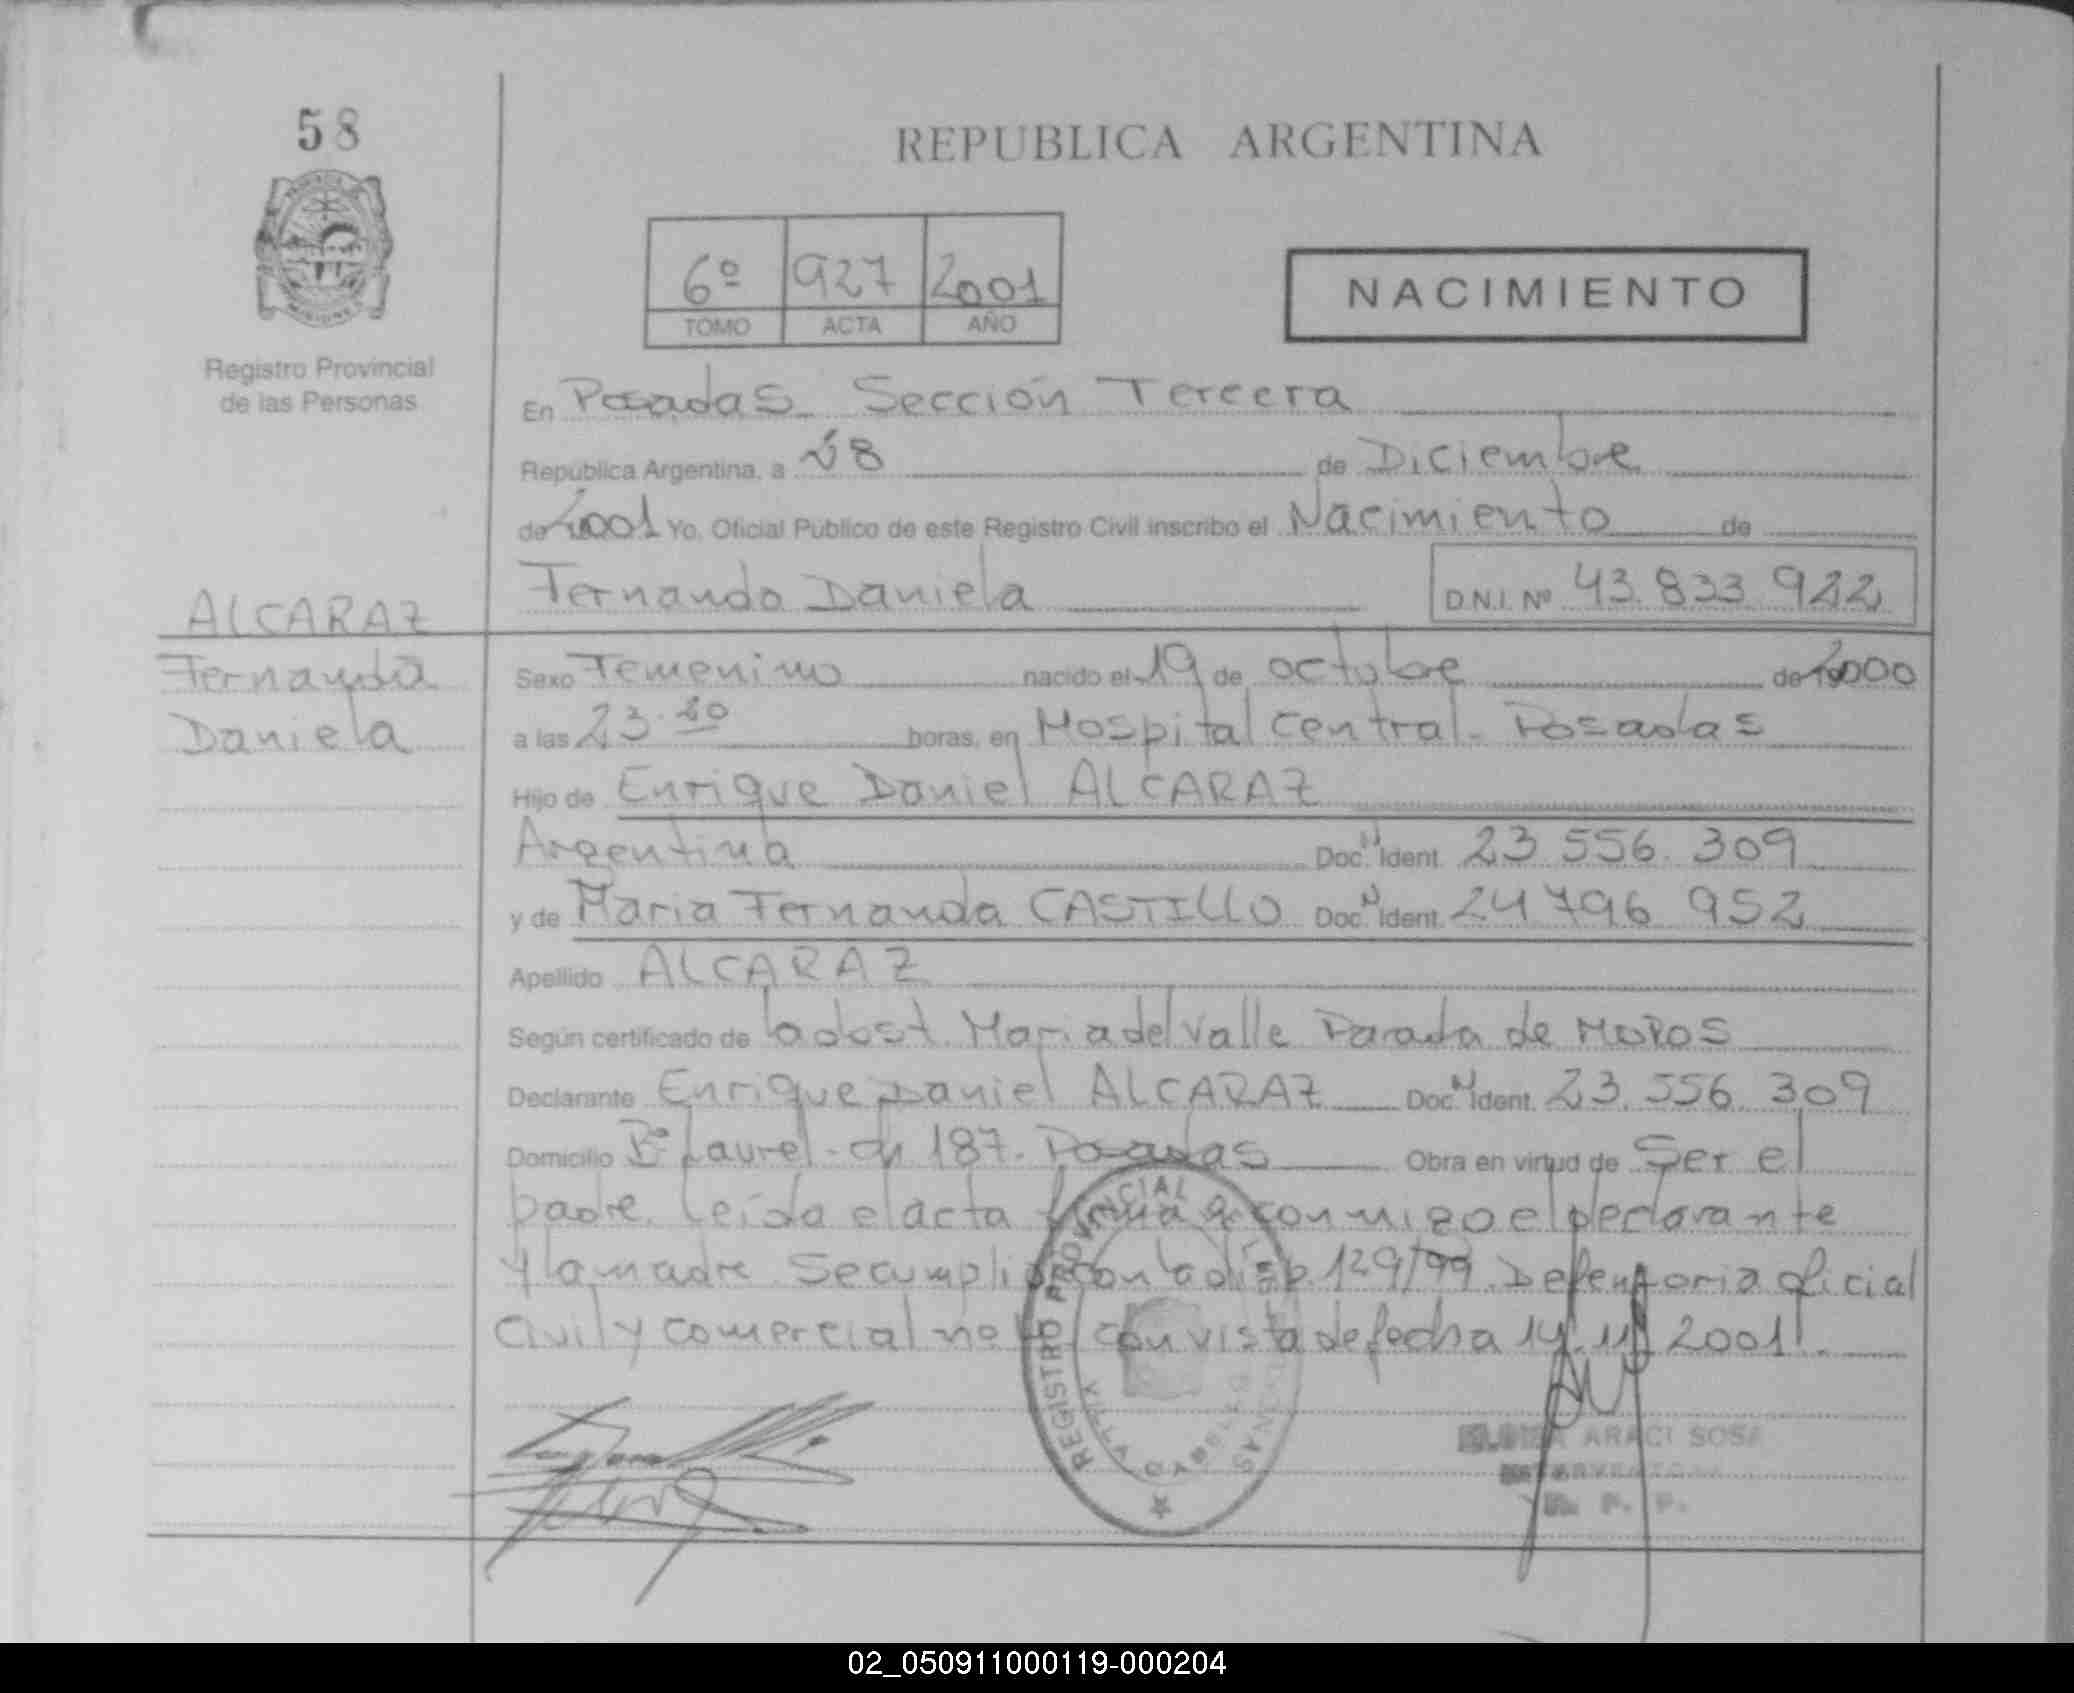 58
REPUBLICA ARGENTINA
6º 927 2001
TOMO ACTA AÑO
NACIMIENTO
Registro Provincial
de las Personas
En Posadas Sección Tercera
República Argentina, a 28 de Diciembre
de 2001 Yo, Oficial Público de este Registro Civil inscribo el Nacimiento de
Fernanda Daniela D.N.I. Nº 43.833.922
ALCARAZ
Fernanda
Daniela
Sexo Femenino nacido el 19 de octubre de 2000
a las 23.20 horas, en Hospital Central - Posadas
Hijo de Enrique Daniel ALCARAZ
Argentina Doc. Ident. 23 556. 309
y de Maria Fernanda CASTILLO Doc. Ident. 24 796 952
Apellido ALCARAZ
Según certificado de la obst. Maria del Valle Parada de MOROS
Declarante Enrique Daniel ALCARAZ Doc. Ident. 23.556.309
Domicilio Bº Laurel - ch 187. Posadas Obra en virtud de Ser el
padre. Leída el acta conmigo el declarante
y la madre. Se cumplió con la disp. 129/99. Defensoria oficial
Civil y comercial nº con vista de fecha 14.11.2001.
REGISTRO PROVINCIAL DE LAS PERSONAS
ARACI SOSA
R. P. P.
02_050911000119-000204